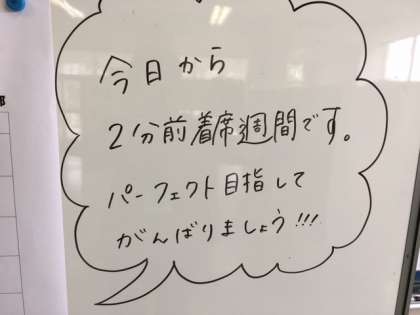 今日から
2分前着席週間です。
パーフェクト目指して
がんばりましょう!!!